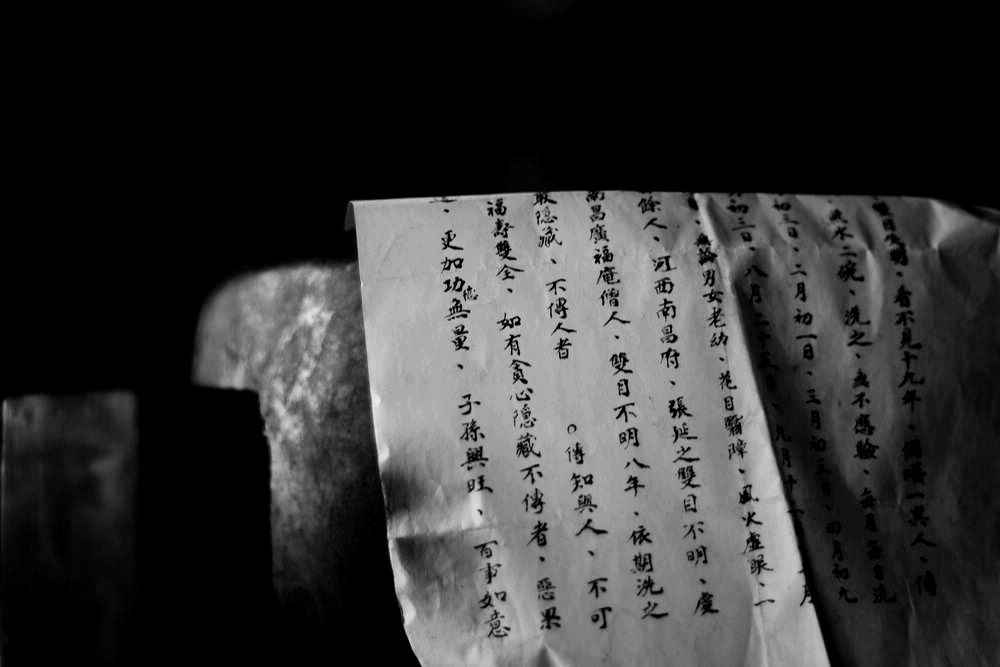 雙目失明、看不見十九年、偶遇一異人、傳
水二碗、洗之、無不應驗、每月每日洗
初三日、二月初一日、三月初三日、四月初九
初三日、八月二十三日、九月十
無論男女老幼、花目翳障、風火虛眼、一
餘人、河西南昌府、張延之雙目不明、虔
南昌廣福庵僧人、雙目不明八年、依期洗之
敢隱藏、不傳人者 。傳知與人、不可
福壽雙全、如有貪心隱藏不傳者、惡果
、更加功德無量、子孫興旺、百事如意